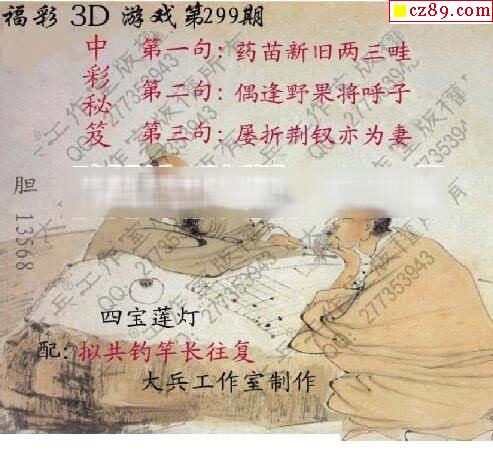 福彩 3D 游戏第299期
cz89.com
中彩秘笈
第一句：药苗新旧两三哇
第二句：偶逢野果将呼子
第三句：屡折荆钗亦为妻
胆 13568
四宝莲灯
配：拟共钓竿长往复
大兵工作室制作
大兵工作室版权所有
QQ：277353943